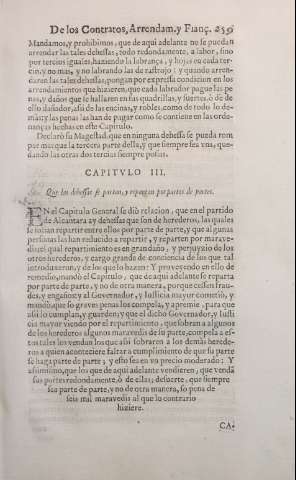 De los Contratos, Arrendam. y Fianç. 259
Mandamos, y prohibimos, que de aqui adelante no se puedan
arrendar las tales dehessas, todo redondamente, a labor, sino
por tercios iguales, haziendo la labrança, y hojas en cada ter-
cio, y no mas, y no labrando las de rastrojo: y quando arren-
daren las tales dehessas, pongan por expressa condicion en los
arrendamientos que hizieren, que cada labrador pague las pe-
nas, y daños que se hallaren en sus quadrillas, y suertes, ò de el
ello dañador, assi de las encinas, y robles, como de todo lo de-
màs; y las penas las han de pagar como se contiene en las orde-
nanças hechas en este Capitulo.
Declarò su Magestad, que en ninguna dehessa se pueda rom
per mas que la tercera parte della, y que siempre sea vna, que-
dando las otras dos tercias siempre posias.
CAPITVLO III.
Que las dehessas se partan, y repartan por partes de partes.
EN el Capitulo General se diò relacion, que en el partido
de Alcantara ay dehessas que son de herederos, las quales
se solian repartir entre ellos por parte de parte, y que algunas
personas las han reducido a repartir, y reparten por marave-
dis: el qual repartimiento es en gran daño, y perjuyzio de los
otros herederos, y cargo grande de conciencia de los que tal
introduxeron, y de los que lo hazen: Y proveyendo en ello de
remedio, mandò el Capitulo, que de aqui adelante se reparta
por parte de parte, y no de otra manera, porque cessen frau-
des, y engaños: y al Governador, y Iusticia mayor cometiò, y
mandò, que so graves penas los compela, y apremie, para que
assi lo cumplan, y guarden; y que el dicho Governador, y Iusti
cia mayor viendo por el repartimiento, que sobran a algunos
de los herederos algunos maravedis de su parte, compela a es-
tos tales les vendan los que assi sobraren a los demàs herede-
ros a quien aconteciere faltar a cumplimiento de que su parte
se haga parte de parte; y esto sea en vn precio moderado: Y
assimismo, que los que de aqui adelante vendieren, que vendã
sus partes redondamente, ò de ellas; desuerte, que siempre
sea parte de parte, y no de otra manera, so pena de
seis mil maravedis al que lo contrario
hiziere.
CA-